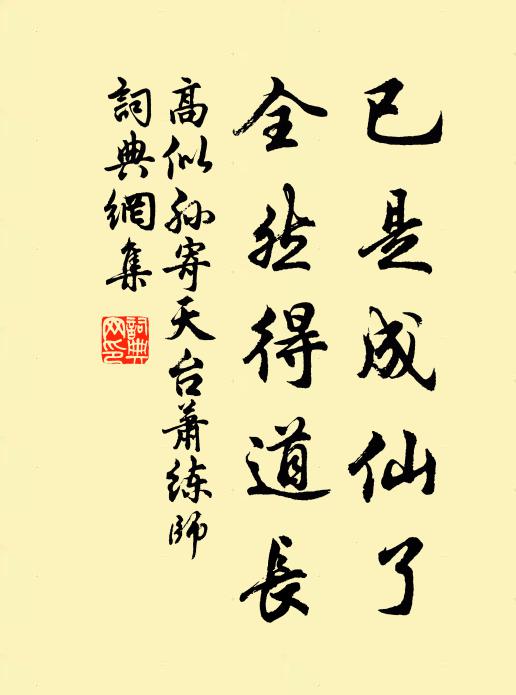 已是成仙了
全然得道長
高似孙寄天台萧练師
詞典網集
詞典网印